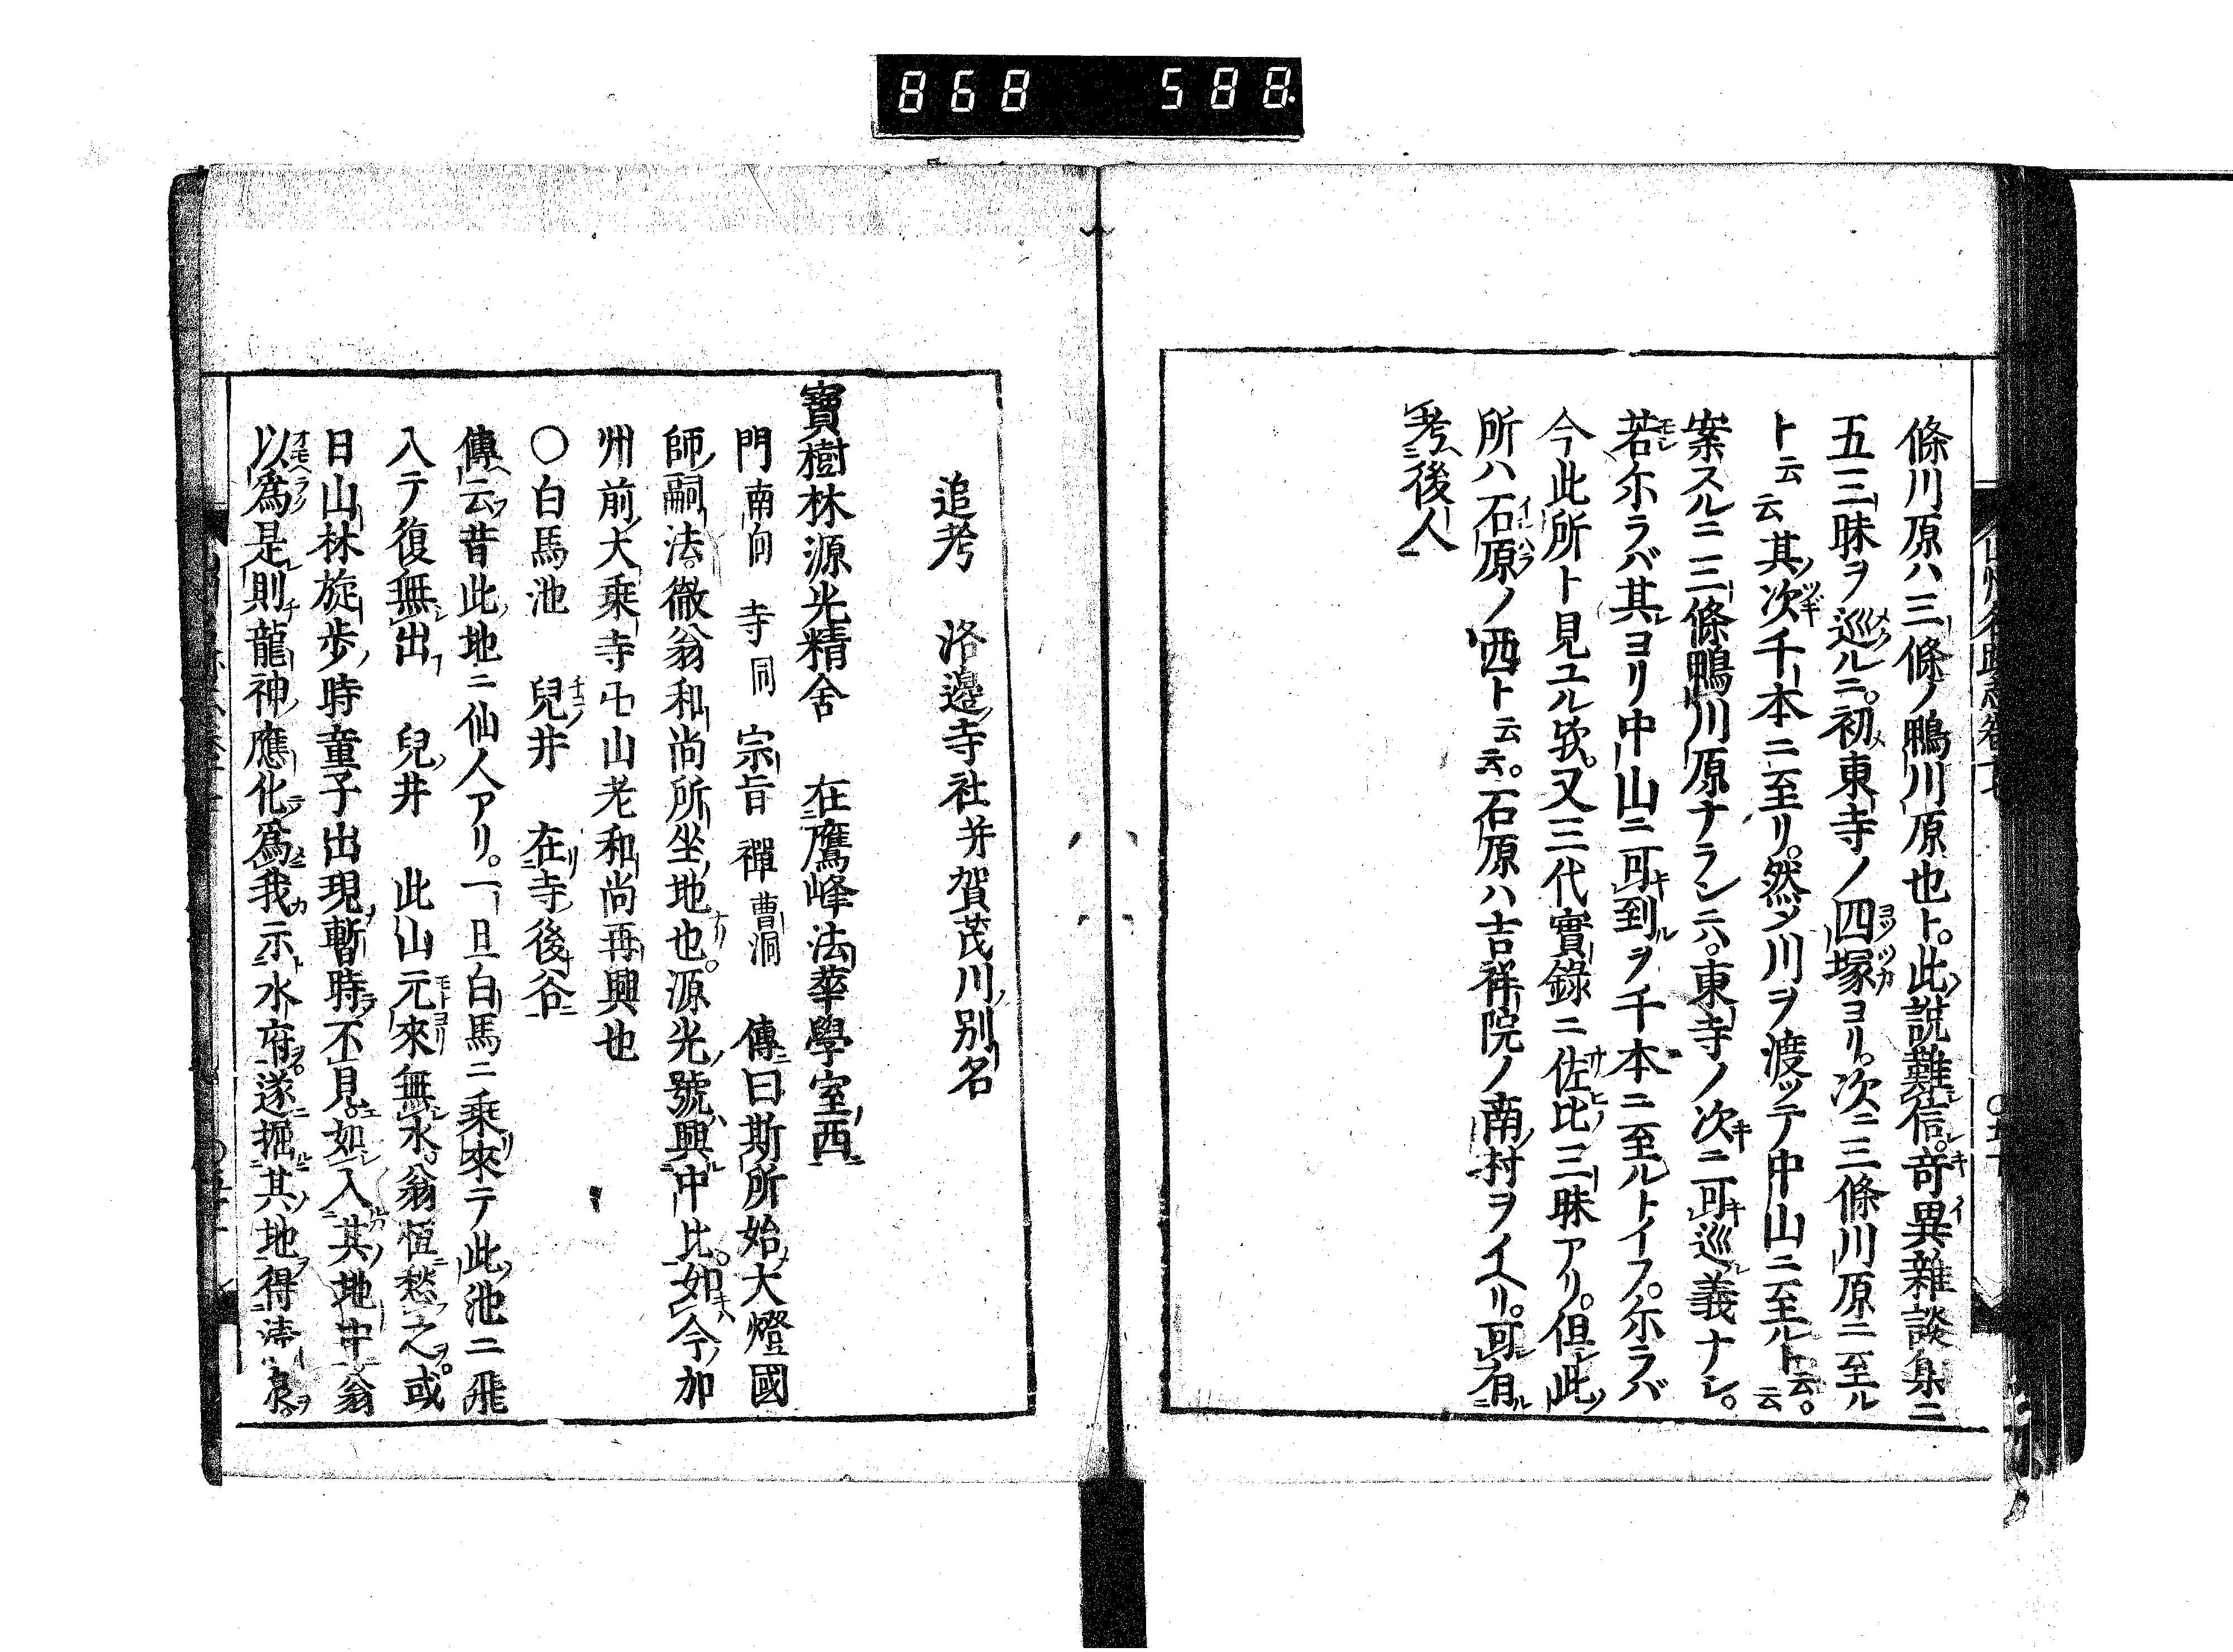 868 588
條川原ハ三條ノ鴨川原也ト。此説難信。奇異雜談集ニ
五三昧ヲ巡ルニ。初東寺ノ四塚ヨリ。次ニ三條川原ニ至ル
ト云云其次千本ニ至リ。然〆川ヲ渡ッテ中山ニ至ルト云云。
案スルニ三條鴨川原ナランニハ。東寺ノ次ニ可巡義ナシ。
若尓ラバ其ヨリ中山ニ可到ヲ千本ニ至ルトイフ。尓ラバ
今此所ト見ユル欤。又三代實錄ニ佐比三昧アリ。但此
所ハ石原ノ西ト云云。石原ハ吉祥院ノ南村ヲイヘリ。可有
考後人
追考 洛邊寺社并賀茂川別名
寶樹林源光精舍 在鷹峰法華學室西
門南向 寺同 宗旨禪曹洞 傳曰斯所始大燈國
師嗣法。徹翁和尚所坐地也。源光號興中比。如今加
州前大乘寺卍山老和尚再興也
〇白馬池 兒井 在寺後谷
傳云昔此地ニ仙人アリ。一旦白馬ニ乘來テ此池ニ飛
入テ復無出 兒井 此山元來無水。翁恒愁之。或
日山林旋歩時童子出現暫時不見。如入其地中翁
以爲是則龍神應化爲我示水府。遂掘其地得清泉。